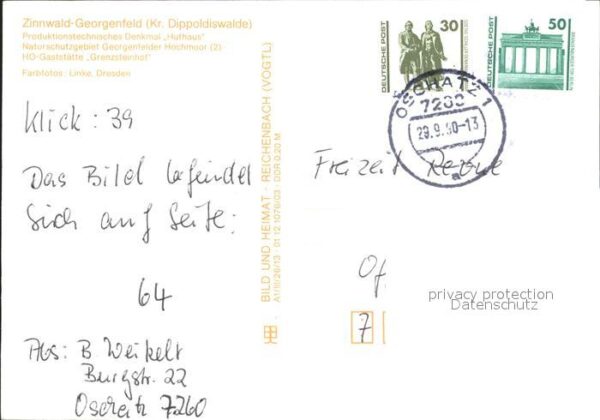 Zinnwald-Georgenfeld (Kr. Dippoldiswalde)
Produktionstechnisches Denkmal „Huthaus"
Naturschutzgebiet Georgenfelder Hochmoor (2)
HO-Gaststätte „Grenzsteinhof"
Farbfotos: Linke, Dresden
Klick: 39
Das Bild befindet
sich auf Seite:
64
Abs: B Weikelt
Burgstr. 22
Oschatz 7260
BILD UND HEIMAT · REICHENBACH (VOGTL)
A1/III/26/13 · 01 12 1076/03 · DDR 0,20 M
30
DEUTSCHE POST
50
DEUTSCHE POST
OSCHATZ 1
7260
29.9.90-13
a
Freizeit Revue
Of.
7
privacy protection
Datenschutz